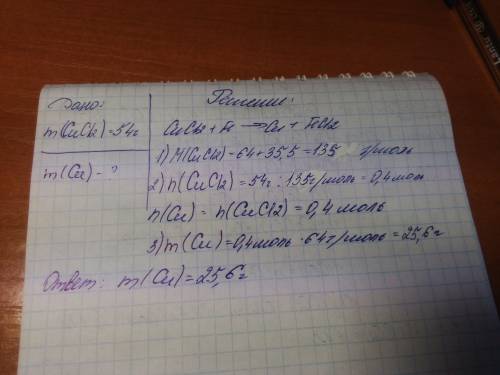 Дано:
m(CuCl2)=54г
m(Cu) - ?
Решение:
CuCl2 + Fe → Cu + FeCl2
1) M(CuCl2) = 64+35,5 = 135 г/моль
2) n(CuCl2) = 54г : 135г/моль = 0,4 моль
n(Cu) = n(CuCl2) = 0,4 моль
3) m(Cu) = 0,4моль · 64г/моль = 25,6г
Ответ: m(Cu) = 25,6г